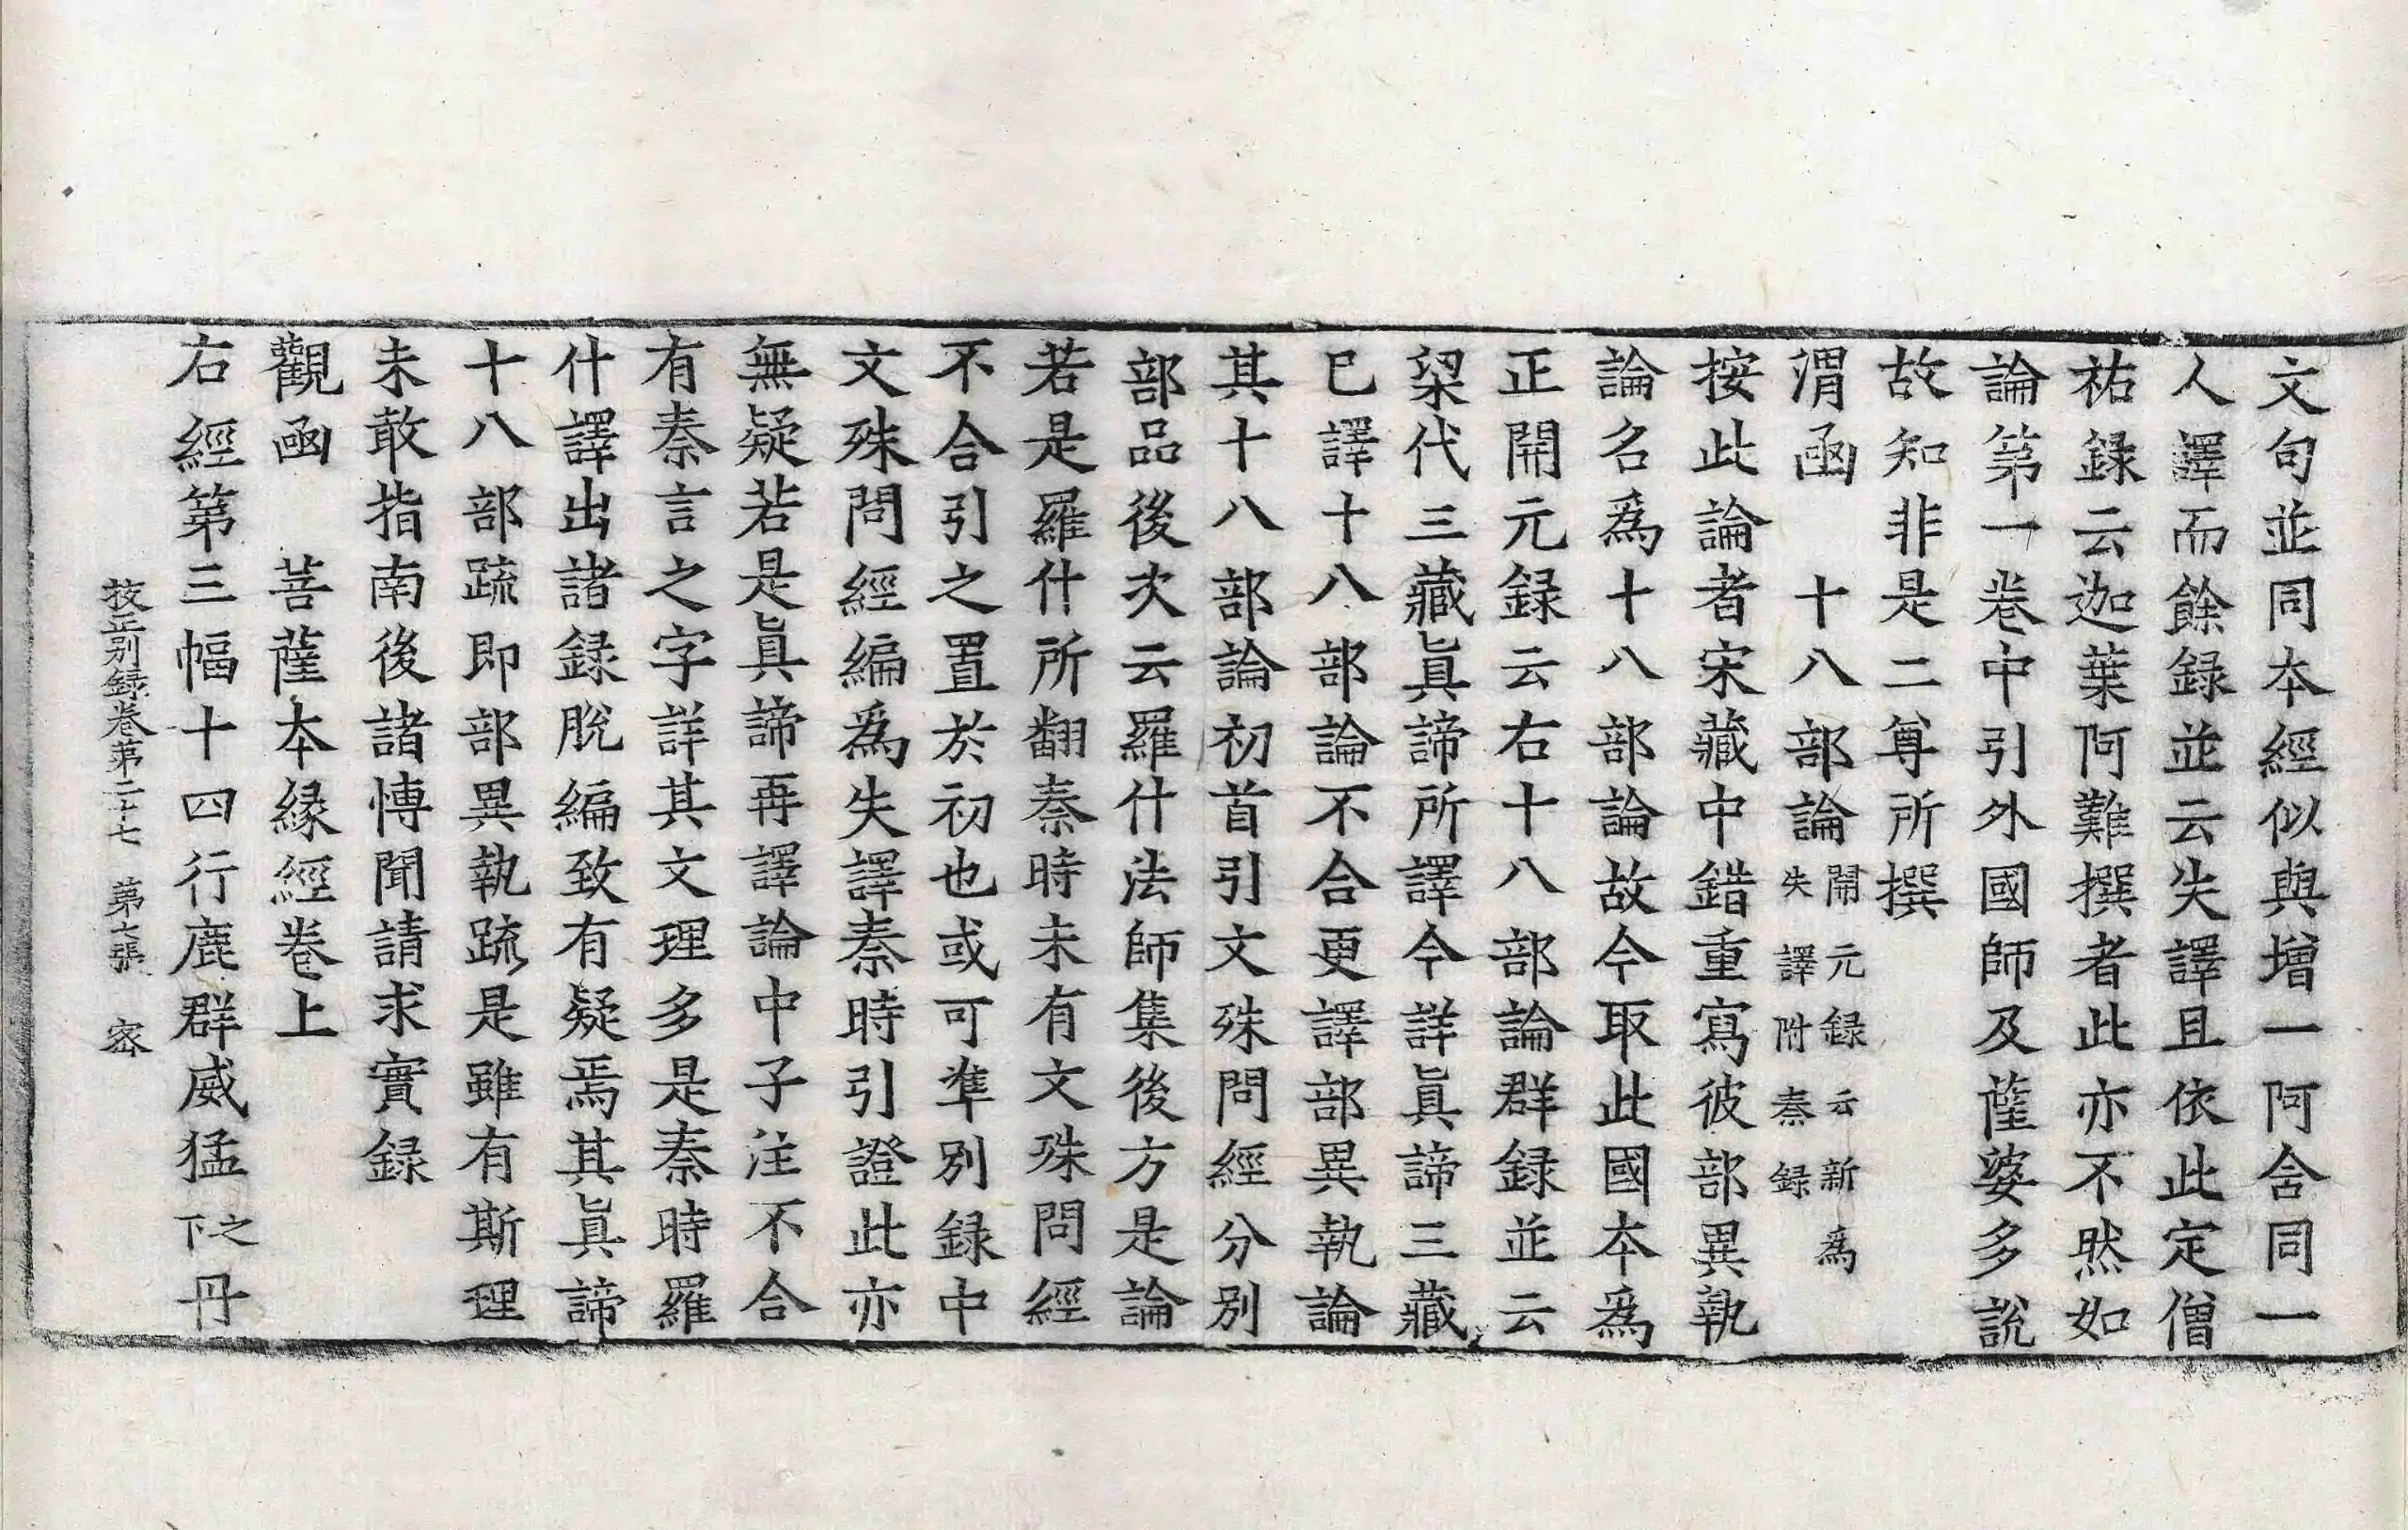 文句並同本經似與增一阿含同一
人譯而餘録並云失譯且依此定僧
祐録云迦葉阿難撰者此亦不然如
論第一卷中引外國師及薩婆多說
故知非是二尊所撰
渭函　十八部論開元録云新爲失譯附秦録
按此論者宋藏中錯重寫彼部異執
論名爲十八部論故今取此國本爲
正開元録云右十八部論群録並云
梁代三藏眞諦所譯今詳眞諦三藏
已譯十八部論不合更譯部異執論
其十八部論初首引文殊問經分別
部品後次云羅什法師集後方是論
若是羅什所翻秦時未有文殊問經
不合引之置於初也或可準別録中
文殊問經編爲失譯秦時引證此亦
無疑若是眞諦再譯論中子注不合
有秦言之字詳其文理多是秦時羅
什譯出諸録脫編致有疑焉其眞諦
十八部疏即部異執疏是雖有斯理
未敢指南後諸博聞請求實録
觀函　菩薩本緣經卷上
右經第三幅十四行鹿群威猛之下丹
校正別録卷第二十七　第七張　密